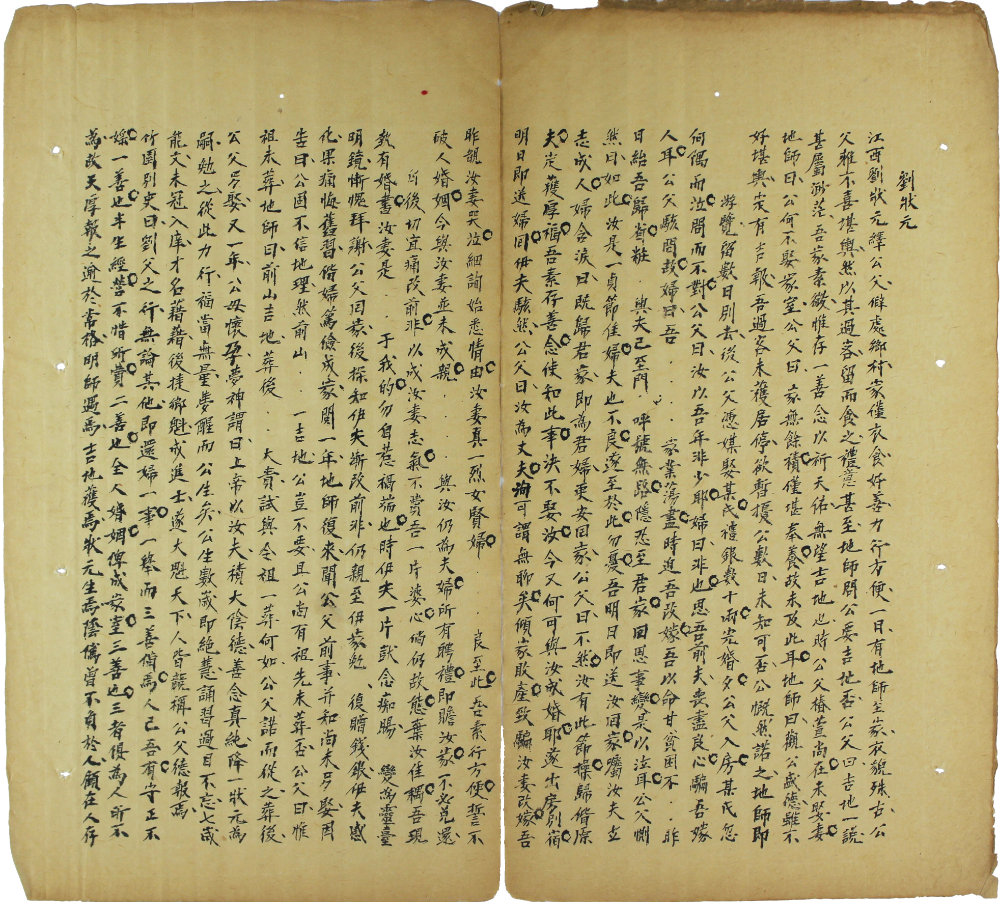 劉狀元
江西劉狀元繹公父僻處鄉村家僅衣食好善力行方便一日有地師至家衣貌殊古公
父雅不喜堪輿然以其過客留而食之禮意甚至地師問公要吉地否公父曰吉地一說
甚屬渺茫吾家素儉惟存一善念以祈天佑無望吉地也時公父椿萱尚在未娶妻
地師曰公何不娶家室公父曰家無餘積僅堪奉養故未及此耳地師曰觀公盛德雖不
好堪輿定有吉報吾過客未獲居停欲暫擾公數日未知可否公慨然諾之地師即
游覽留數日別去後公父憑媒娶某氏禮銀數十兩完婚夕公父入房某氏忽
向隅而泣問而不對公父曰汝以吾年非少耶婦曰非也思吾前夫喪盡良心騙吾嫁
人耳公父駭問故婦曰吾 家業蕩盡時迫吾改嫁吾以命甘貧困不 非
日紿吾歸 粧 與夫已至門 呼號無路隱忍至君家回思事變是以泣耳公父惻
然曰如此汝是一貞節佳婦夫也不良遂至於此勿憂吾明日即送汝回家囑汝夫立
志成人婦含淚曰既歸君家即為君婦更安回家公父曰不然汝有此節操歸脩原
夫定獲厚福吾素存善念使知此事決不娶汝今又何可與汝成婚耶遂出房別宿
明日即送婦回伊夫駭然公父曰汝為丈夫 可謂無聊矣傾家敗產致騙汝妻改嫁吾
昨親汝妻哭泣細詢始悉情由汝妻真一烈女賢婦 良至此吾素行方便誓不
破人婚姻今與汝妻並未成親 與汝仍為夫婦所有聘禮即贍汝家不必覓還
嗣後切宜痛改前非以成汝妻志氣不費吾一片婆心倘仍故態棄汝佳耦吾現
教有婚書汝妻是 于我的勿自惹禍端也時伊夫一片獃念痴腸 變為靈臺
明鏡慚愧拜謝公父回家後探知伊夫漸改前非仍親至伊家勉 復贈錢銀伊夫感
化果痛悔舊習偕婦篤儉成家閱一年地師復來聞公父前事并知尚未另娶因
告曰公固不信地理然前山 一吉地公豈不要且公尚有祖先未葬否公父曰惟
祖未葬地師曰前山吉地葬後 大貴試與令祖一葬何如公父諾而從之葬後
公父另娶又一年公母懷孕夢神謂曰上帝以汝夫積大陰德善念真純降一狀元為
嗣勉之從此力行福當無量夢醒而公生矣公生數歲即絕慧誦習過目不忘七歲
能文未冠入庠才名藉藉後捷鄉魁成進士遂大魁天下人皆謂稱公父德報焉
竹園別史曰劉父之行無論其他即還婦一事一舉而三善備焉人己吾有守正不
婬一善也半生經營不惜所費二善也全人婚姻俾成家室三善也三者俱為人所不
為故天厚報之逾於常格明師遇焉吉地獲焉狀元生焉陰騭曾不負於人顧在人存